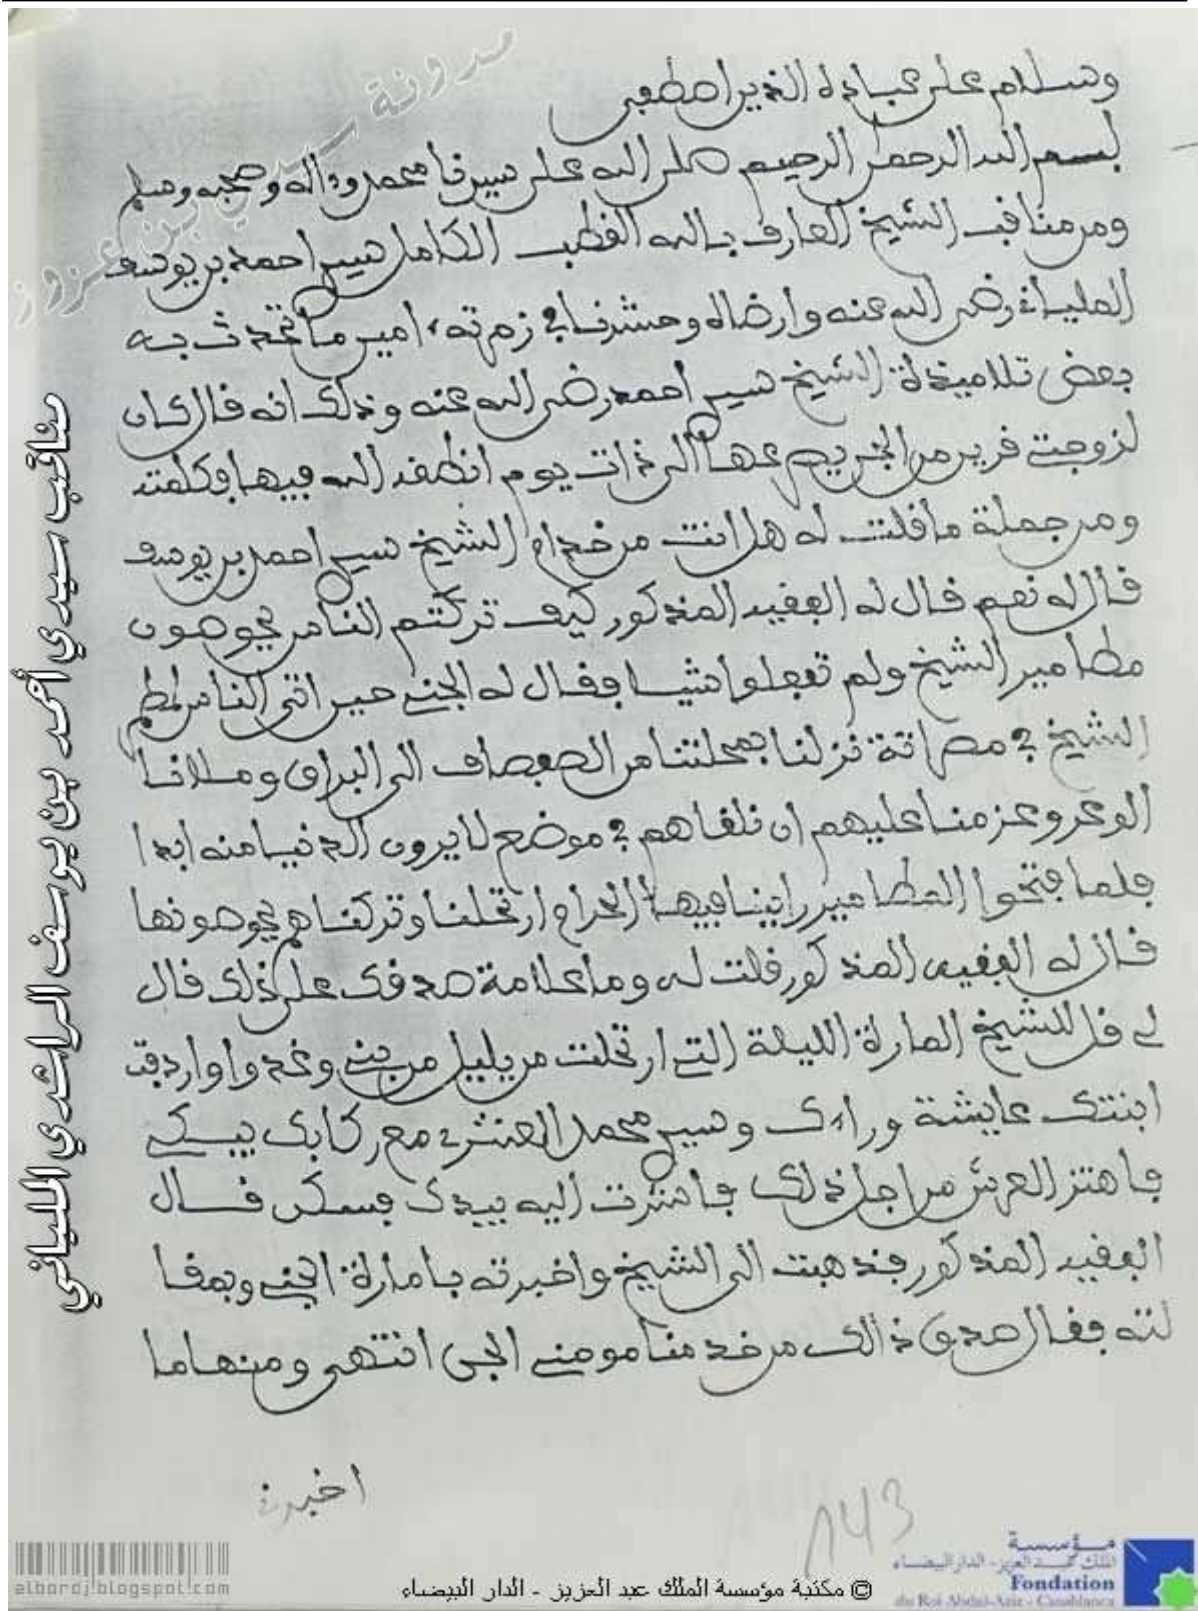 وسلام على عباده الذين اصطفى
بسم الله الرحمن الرحيم صلى الله على سيدنا محمد وءاله وصحبه وسلم
ومن مناقب الشيخ العارف بالله القطب الكامل سيدي احمد بن يوسف
الملياني رضي الله عنه وارضاه وحشرنا في زمرته ءامين ما تحدث به
بعض تلاميذة الشيخ سيدي احمد رضي الله عنه وذلك انه قال كان
لزوجتي قرين من الجن يصرعها الى ذات يوم انطقه الله فيها فكلمته
ومن جملة ما قلت له هل انت من خدام الشيخ سيدي احمد بن يوسف
قال له نعم قال له الفقيه المذكور كيف تركتم الناس يحوصون
مطامير الشيخ ولم تفعلوا شيا فقال له الجني حين اتى الناس لمطمر
الشيخ في مصراتة نزلنا بمحلتنا من الصفصاف الى البراق وملانا
الوعر وعزمنا عليهم ان نلقاهم في موضع لا يرون الدنيا منه ابدا
فلما فتحوا المطامير راينا فيها الحرام ارتحلنا وتركناهم يحوصونها
قال له الفقيه المذكور قلت له وما علامة صدقك على ذلك قال
لي قل للشيخ امارة الليلة التي ارتحلت من يليل من بني وغدوا واردفت
ابنتك عايشة وراءك وسيدي محمد العنتري مع ركابك يبكي
فاهتز العرش من اجل ذلك فاشرت اليه بيدك فسكن قال
الفقيه المذكور فذهبت الى الشيخ واخبرته بامارة الجني وبمقا
لته فقال صدق ذالك من خدمنا مومني الجن انتهى ومنها ما
اخبرني
143
مناقب سيدي أحمد بن يوسف الراشدي الملياني
مدونة سيدي بن عزوز
elbordj.blogspot.com
© مكتبة مؤسسة الملك عبد العزيز - الدار البيضاء
مؤسسة
الملك عبد العزيز - الدار البيضاء
Fondation
du Roi Abdul-Aziz - Casablanca